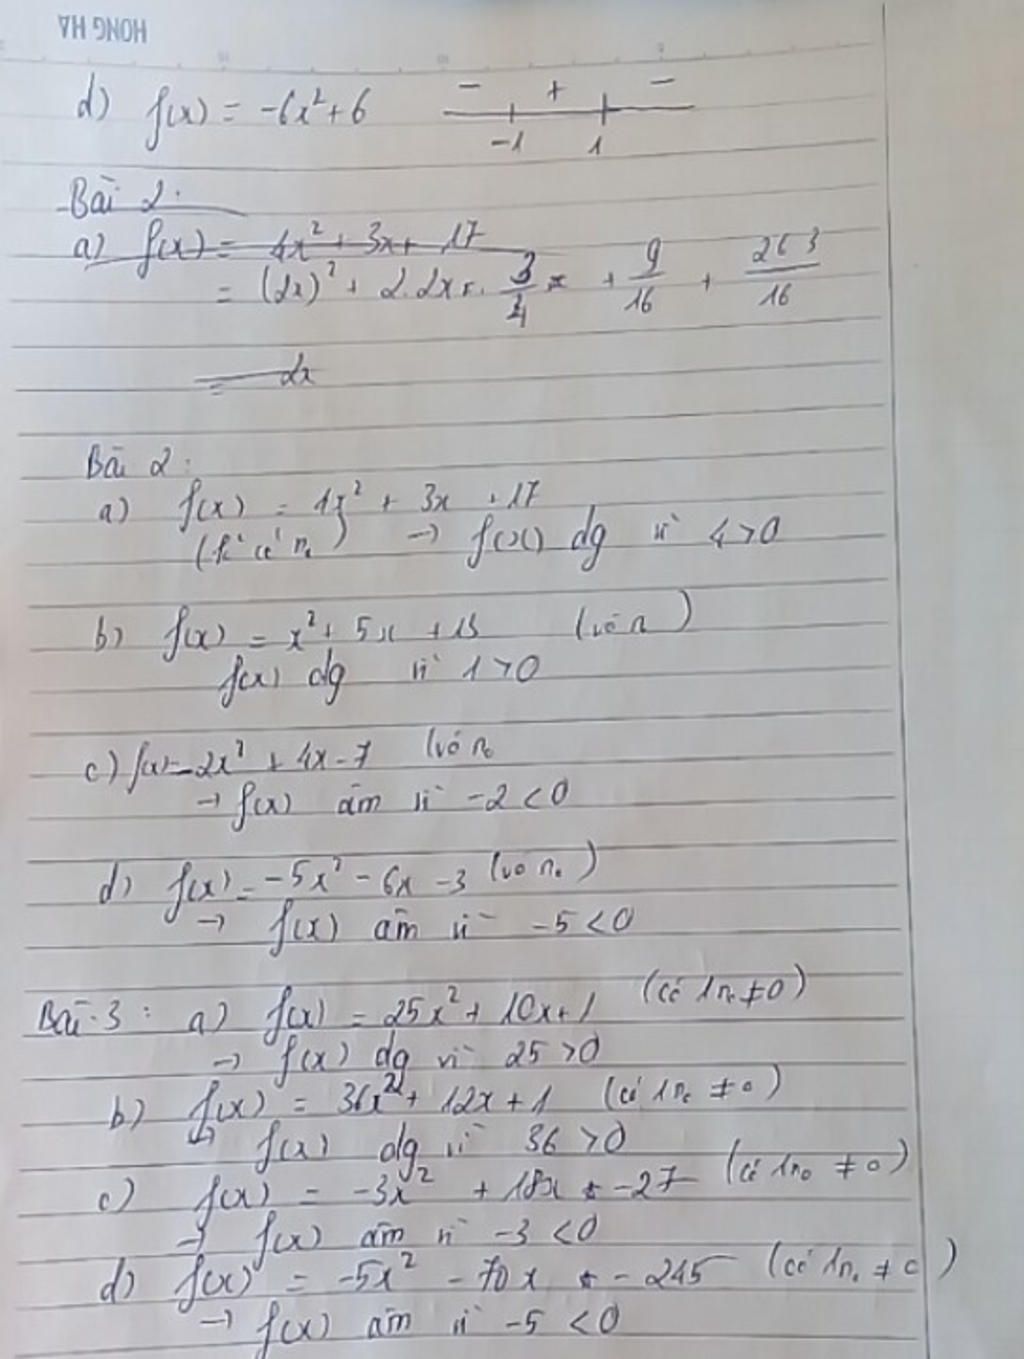 HONG HA
d) f(x) = -6x² + 6 - + -
-1 1
Bài 2:
a) f(x) = 4x² + 3x + 17
= (2x)² + 2.2x. 3/4 + 9/16 + 263/16
= 2x
Bài 2:
a) f(x) = 4x² + 3x + 17
(k có n₀) → f(x) dg vì 4 > 0
b) f(x) = x² + 5x + 15 (vô n)
f(x) dg vì 1 > 0
c) f(x) = -2x² + 4x - 7 (vô n₀
→ f(x) âm vì -2 < 0
d) f(x) = -5x² - 6x - 3 (vô n₀)
→ f(x) âm vì -5 < 0
Bài 3: a) f(x) = 25x² + 10x + 1 (có 1n₀ ≠ 0)
→ f(x) dg vì 25 > 0
b) f(x) = 36x² + 12x + 1 (có 1n₀ ≠ 0)
↳ f(x) dg vì 36 > 0
c) f(x) = -3x² + 18x - 27 (có 1n₀ ≠ 0)
→ f(x) âm vì -3 < 0
d) f(x) = -5x² - 70x - 245 (có 1n₀ ≠ 0)
→ f(x) âm vì -5 < 0